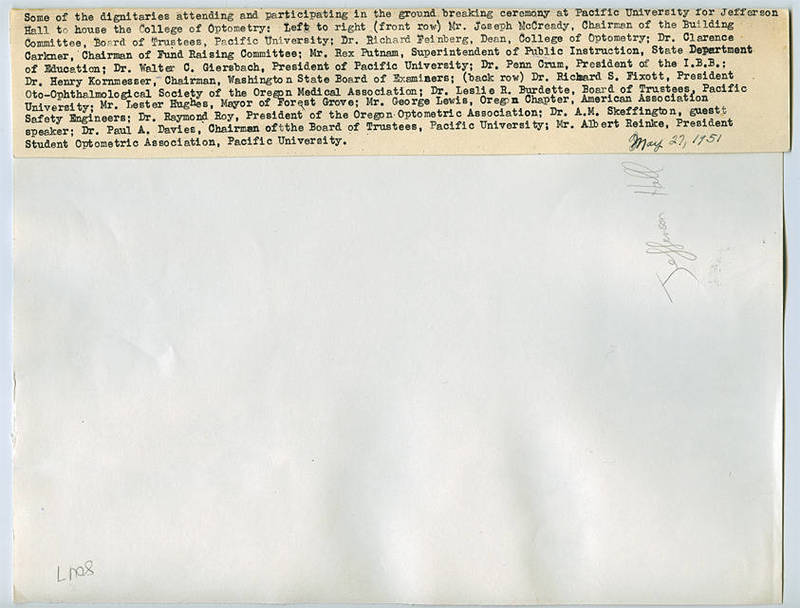 Some of the dignitaries attending and participating in the ground breaking ceremony at Pacific University for Jefferson
Hall to house the College of Optometry: Left to right (front row) Mr. Joseph McCready, Chairman of the Building
Committee, Board of Trustees, Pacific University; Dr. Richard Feinberg, Dean, College of Optometry; Dr. Clarence
Carkner, Chairman of Fund Raising Committee; Mr. Rex Putnam, Superintendent of Public Instruction, State Department
of Education; Dr. Walter C. Giersbach, President of Pacific University; Dr. Penn Crum, President of the I.B.B.;
Dr. Henry Kornmesser, Chairman, Washington State Board of Examiners; (back row) Dr. Richard S. Fixott, President
Oto-Ophthalmological Society of the Oregon Medical Association; Dr. Leslie R. Burdette, Board of Trustees, Pacific
University; Mr. Lester Hughes, Mayor of Forest Grove; Mr. George Lewis, Oregon Chapter, American Association
Safety Engineers; Dr. Raymond Roy, President of the Oregon Optometric Association; Dr. A.M. Skeffington, guestt
speaker; Dr. Paul A. Davies, Chairman oftthe Board of Trustees, Pacific University; Mr. Albert Reinke, President
Student Optometric Association, Pacific University.
May 27, 1951
Jefferson Hall